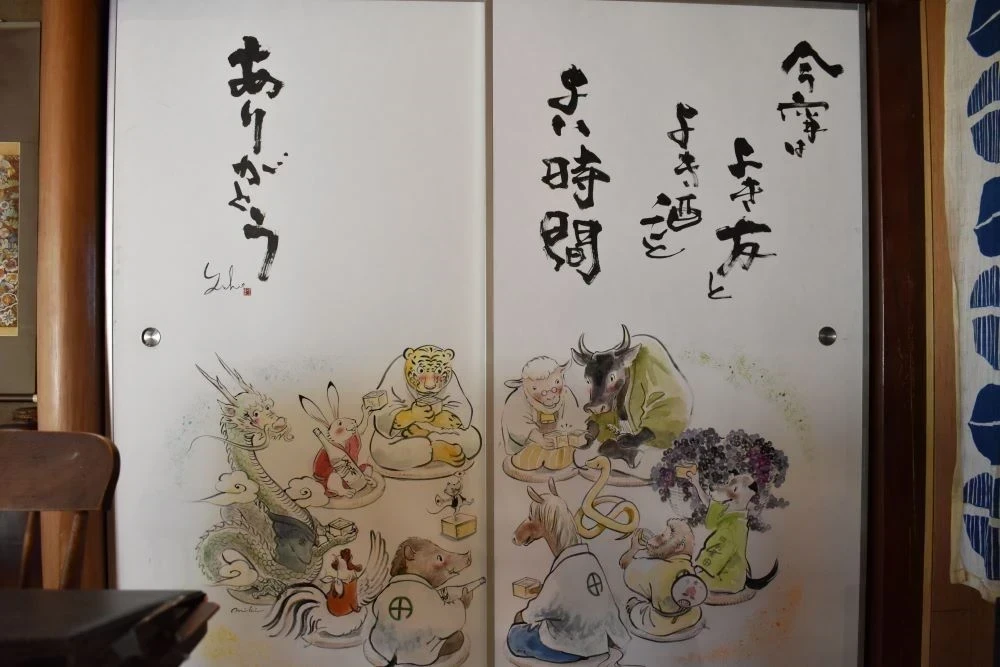 今宵は
よき友と
よき酒と
よい時間
ありがとう